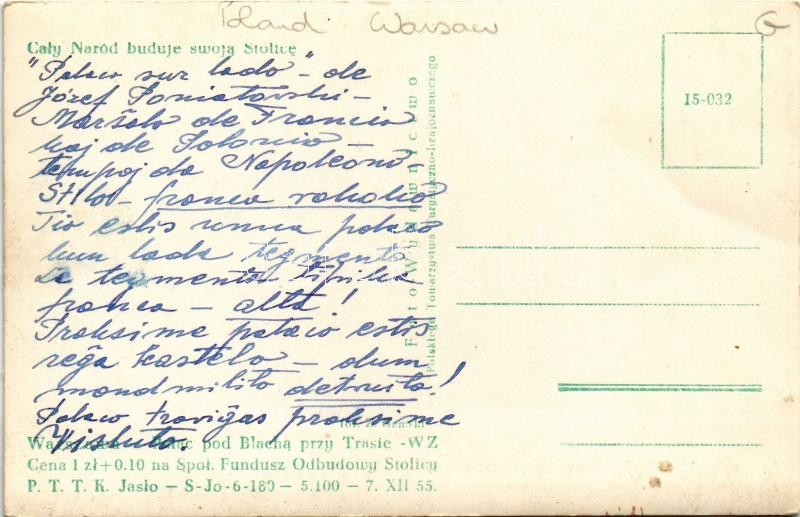 Poland Warsaw G
Cały Naród buduje swoją Stolicę
"Palaco sur lado" - de
Józef Poniatovski -
Marŝalo de Francio
kaj de Polonio -
tempoj da Napoleono.
Stilo - franca rokoko
Tio estis unua palaco
kun lada tegmento
La tegmento tipika
franca - alta!
Proksime palaco estis
reĝa kastelo - dum
mondmilito detruita!
Palaco troviĝas proksime
Vistulo.
Foto Wydawnictwo
Polskiego Towarzystwa Turystyczno-Krajoznawczego
15-032
fot.
Warszawa - Pałac pod Blachą przy Trasie -WZ
Cena 1 zł+0.10 na Społ. Fundusz Odbudowy Stolicy
P. T. T. K. Jasło — S-Jo-6-180 — 5.100 — 7. XII 55.